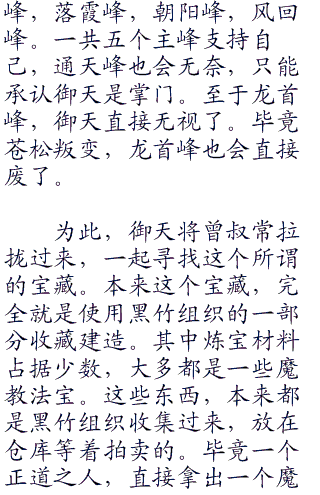 峰，落霞峰，朝阳峰，风回
峰。一共五个主峰支持自
己，通天峰也会无奈，只能
承认御天是掌门。至于龙首
峰，御天直接无视了。毕竟
苍松叛变，龙首峰也会直接
废了。
为此，御天将曾叔常拉
拢过来，一起寻找这个所谓
的宝藏。本来这个宝藏，完
全就是使用黑竹组织的一部
分收藏建造。其中炼宝材料
占据少数，大多都是一些魔
教法宝。这些东西，本来都
是黑竹组织收集过来，放在
仓库等着拍卖的。毕竟一个
正道之人，直接拿出一个魔